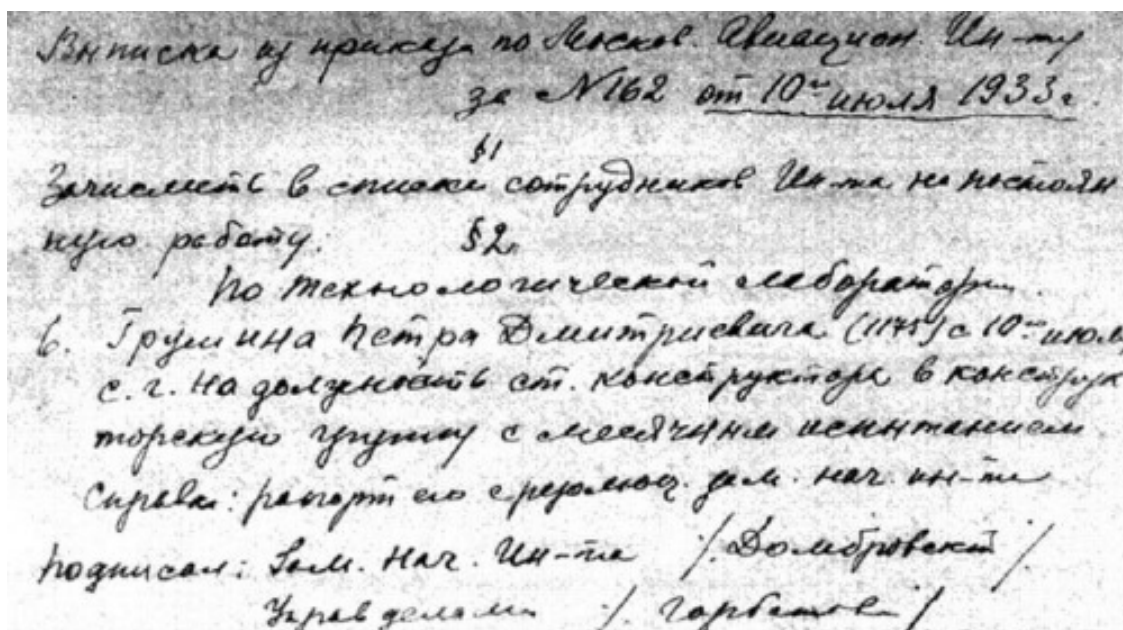 Выписка из приказа по Москов. Авиацион. Ин-ту
за №162 от 10го июля 1933г.
§1
Зачислить в списки сотрудников Ин-та на постоян
ную работу.
§2.
По технологической лаборатории
6. Грушина Петра Дмитриевича (1175) с 10го июля
с.г. на должность ст. конструктора в конструк
торскую группу с месячным испытанием
Справка: рапорт его с резолюц. зам. нач. ин-та
Подписал: Зам. Нач. Ин-та /Домбровский/
Управделами /Горбатов/